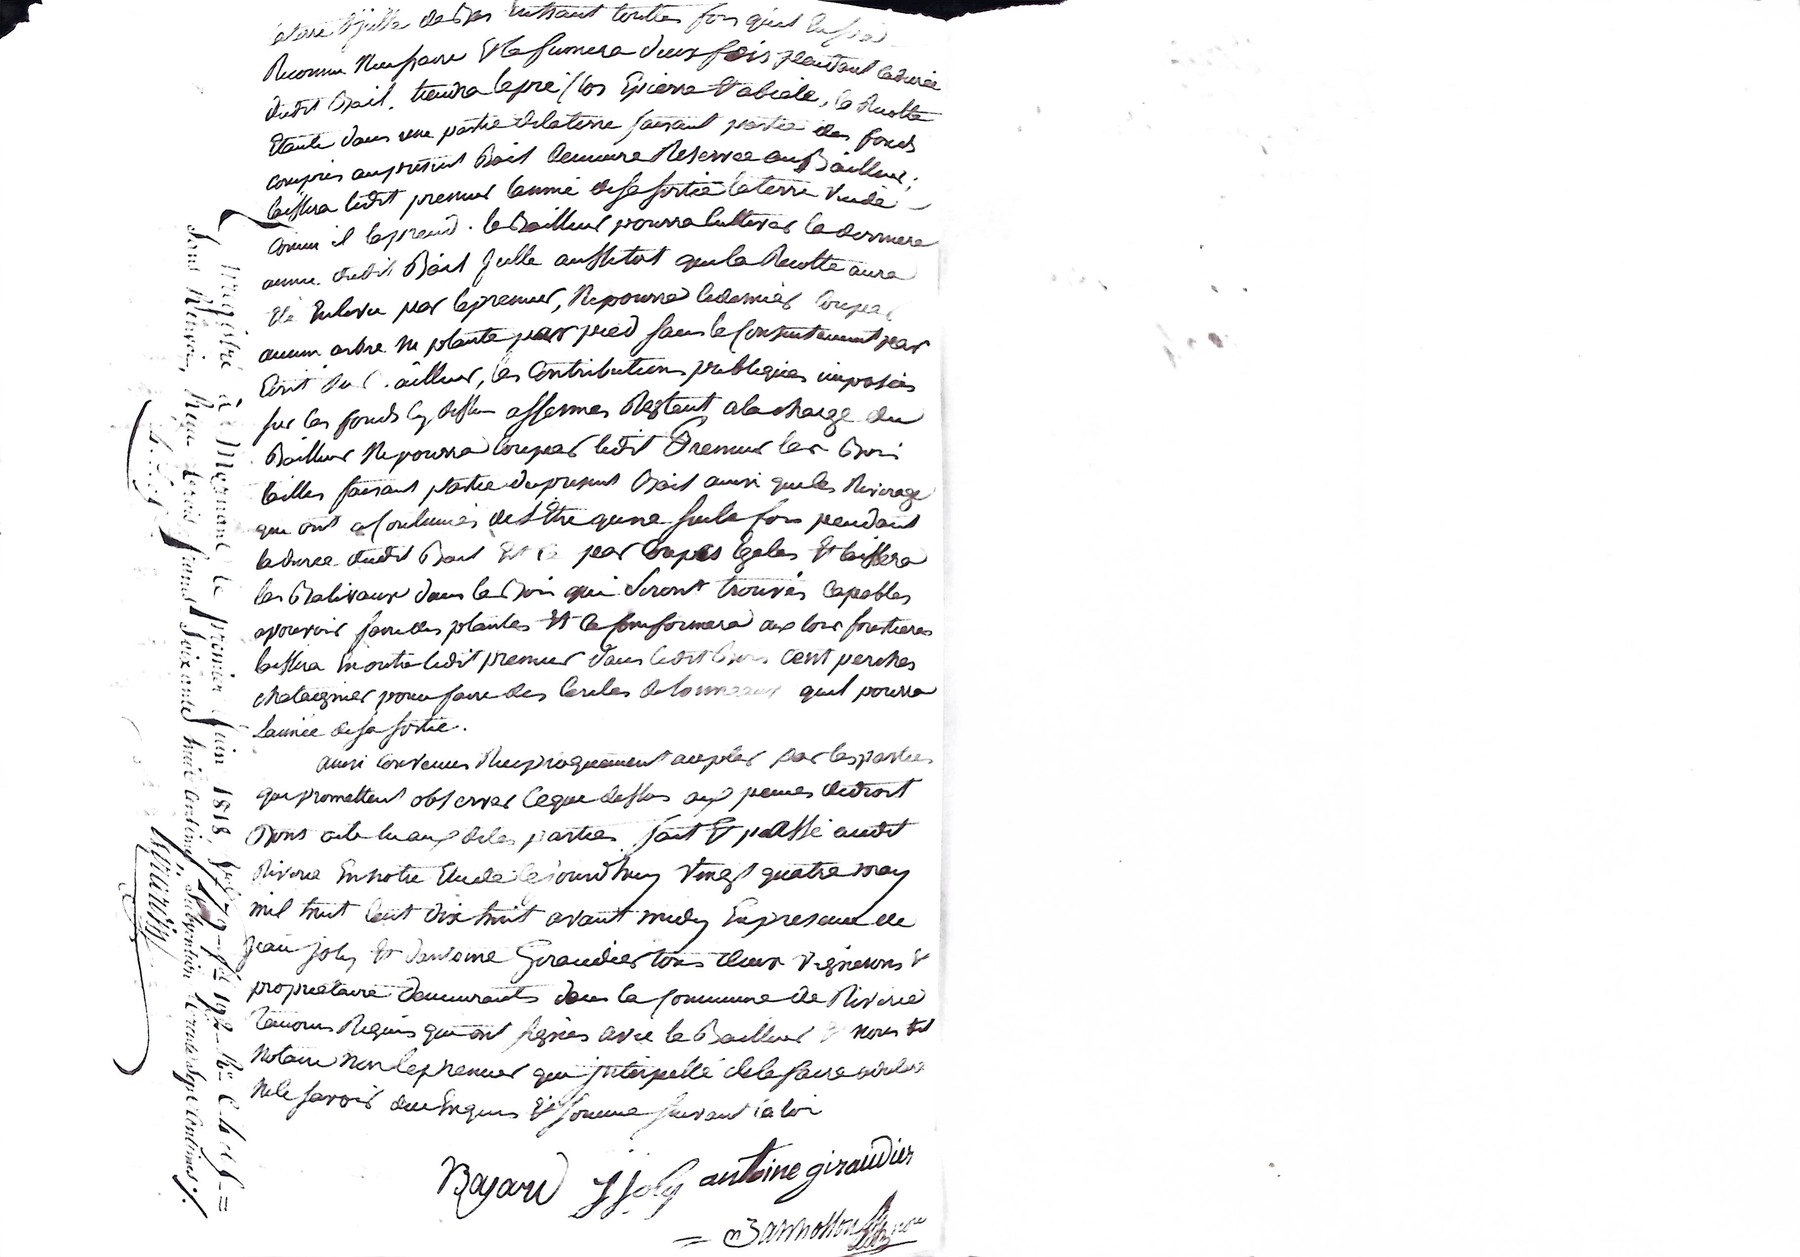 laterre Icelle de Ses
Reconnu Necessaire Et la fumera deux fois pendant la durée
dudit Bail. tiendra le pré clos Epierré Et abialé, la Recolte
Etante dans une partie de la terre faisant partie des fonds
compris au présent Bail demeure Reservée au Bailleur;
laissera ledit preneur l'année de sa sortie la terre Vuide
comme il la prend. le Bailleur pourra Cultiver la derniere
année dudit Bail Icelle aussitot que la Recolte aura
Eté Enlevée par le preneur, Ne pourra ledernier Couper
aucun arbre ni plante par pied sans le Consentement par
Ecrit du Bailleur, les Contributions publiques imposées
sur les fonds cy dessus affermés Restent a la charge du
Bailleur Ne pourra Couper ledit Preneur les Bois
tailles faisant partie du present Bail ainsi que les Riverage
qui ont a Coutumes de l'Etre qu'une seule fois pendant
la durée dudit Bail Et ce par Coupes Egales Et laissera
les Baliveaux dans le Bois qui Seront trouvés Capables
a pouvoir faire des plantes Et Se Conformera aux lois forestieres
laissera En outre ledit preneur dans ledit Bois Cent perches
chataignier pour faire des Cercles de tonneaux quil pourra
l'année de sa sortie.
ainsi Convenu Reciproquement accepter par les parties
qui promettent observer Ceque dessus aux peines de droit
Dont acte lu aux dites parties fait Et passé audit
Riverie En notre Etude Cejourdhuy Vingt quatre may
mil huit Cent dix huit avant midy En presence de
jean joly Et d'antoine Giraudier tous deux Vignerons Et
proprietaire demeurants dans la Commune de Riverie
temoins Requis qui ont signés avec le Bailleur Et nous dit
Notaire Non le preneur qui Interpellé de le faire a declaré
Ne le savoir du Enquis Et Sommé Suivant la loi
Bayard J Joly antoine giraudier
Enregistré à Mornant le premier Juin 1818,
Reçu trois francs Soixante huit Centimes, Subvention trente Sept Centimes